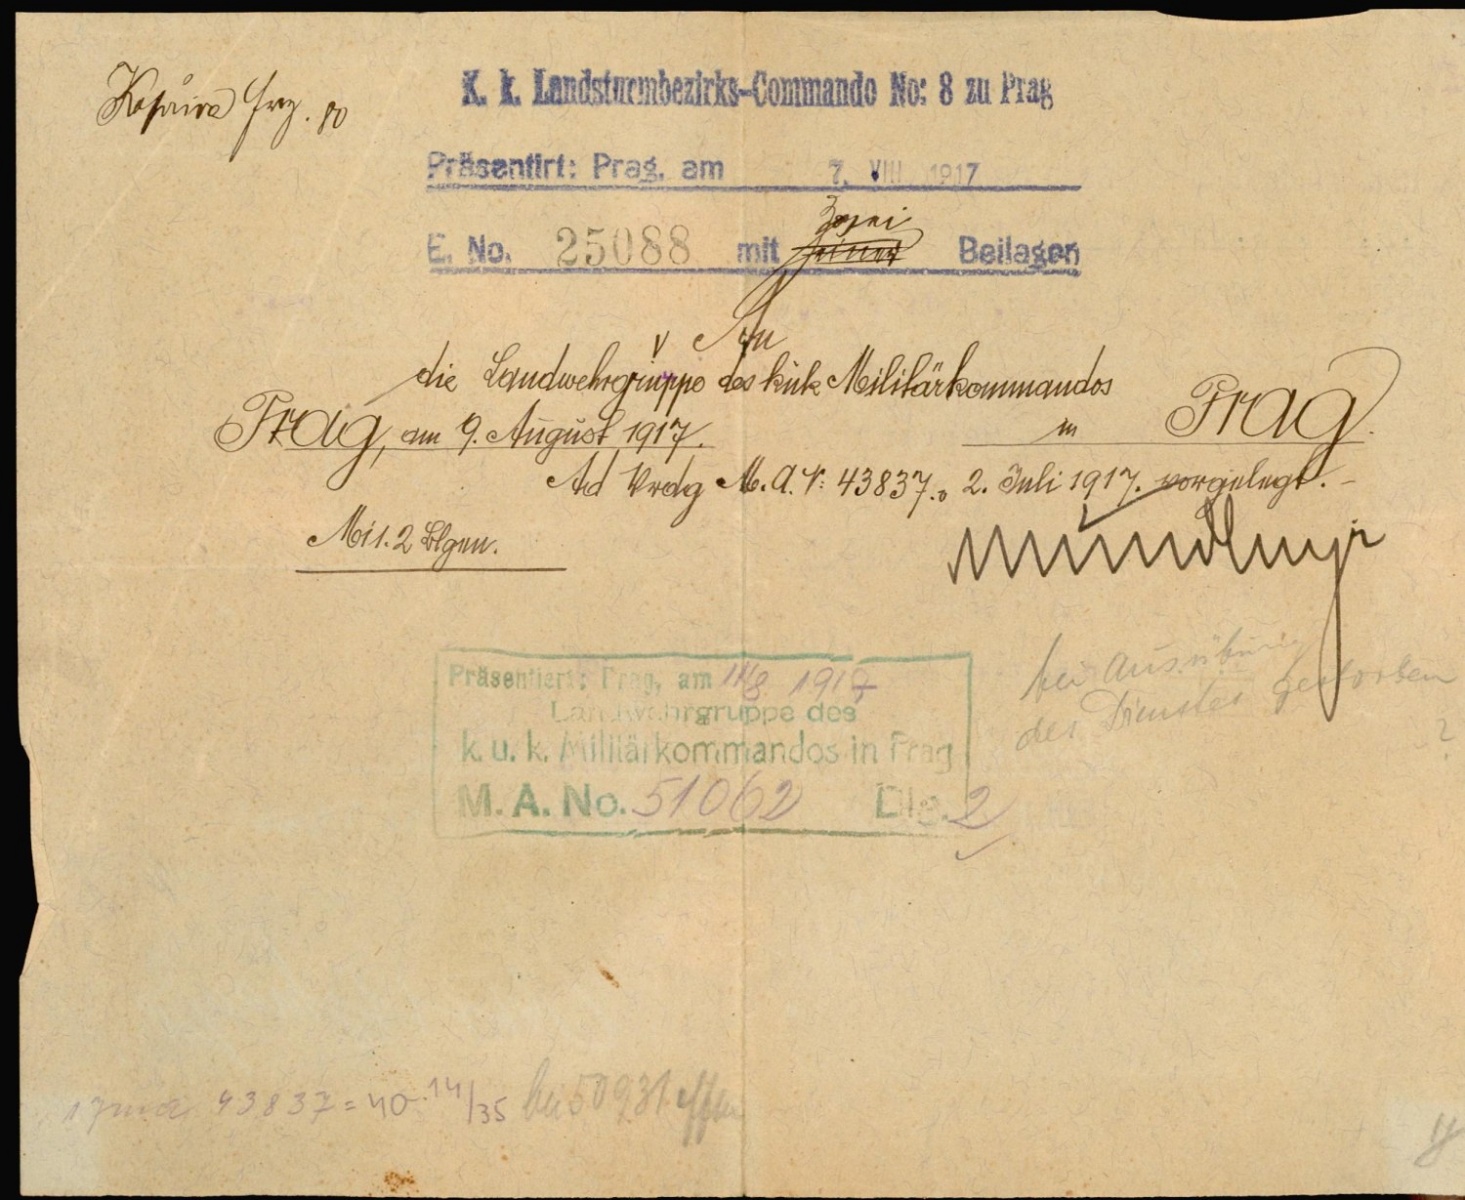 K. k. Landsturmbezirks-Commando No: 8 zu Prag
Präsentirt: Prag, am 7. VIII 1917
E. No. 25088 mit zwei Beilagen
An
die Landwehrgruppe des k.u.k. Militärkommandos
in Prag.
Prag, am 9. August 1917.
Ad Erdg M.A.N: 43837. v. 2. Juli 1917. vorgelegt. -
Mit. 2 Blgen.
Präsentiert: Prag, am 11/8 1917
Landwehrgruppe des
k. u. k. Militärkommandos in Prag
M. A. No. 51062 Blg. 2
bei Ausübung
des Dienstes gestorben
?
43837 = 40-14/35 bei 50931